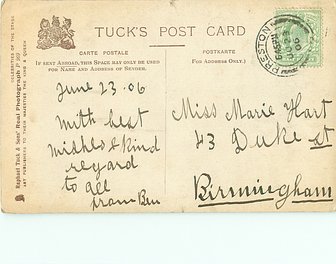 TUCK'S POST CARD
CARTE POSTALE
IF SENT ABROAD, THIS SPACE MAY ONLY BE USED
FOR NAME AND ADDRESS OF SENDER.
POSTKARTE
(FOR ADDRESS ONLY.)
CELEBRITIES OF THE STAGE.
Raphael Tuck & Sons' Real Photograph P 29
ART PUBLISHERS TO THEIR MAJESTIES THE KING & QUEEN
PRESTON
June 23.06
With best
wishes & kind
regard
to all
from Ben
Miss Marie Hart
43 Duke st
Birmingham